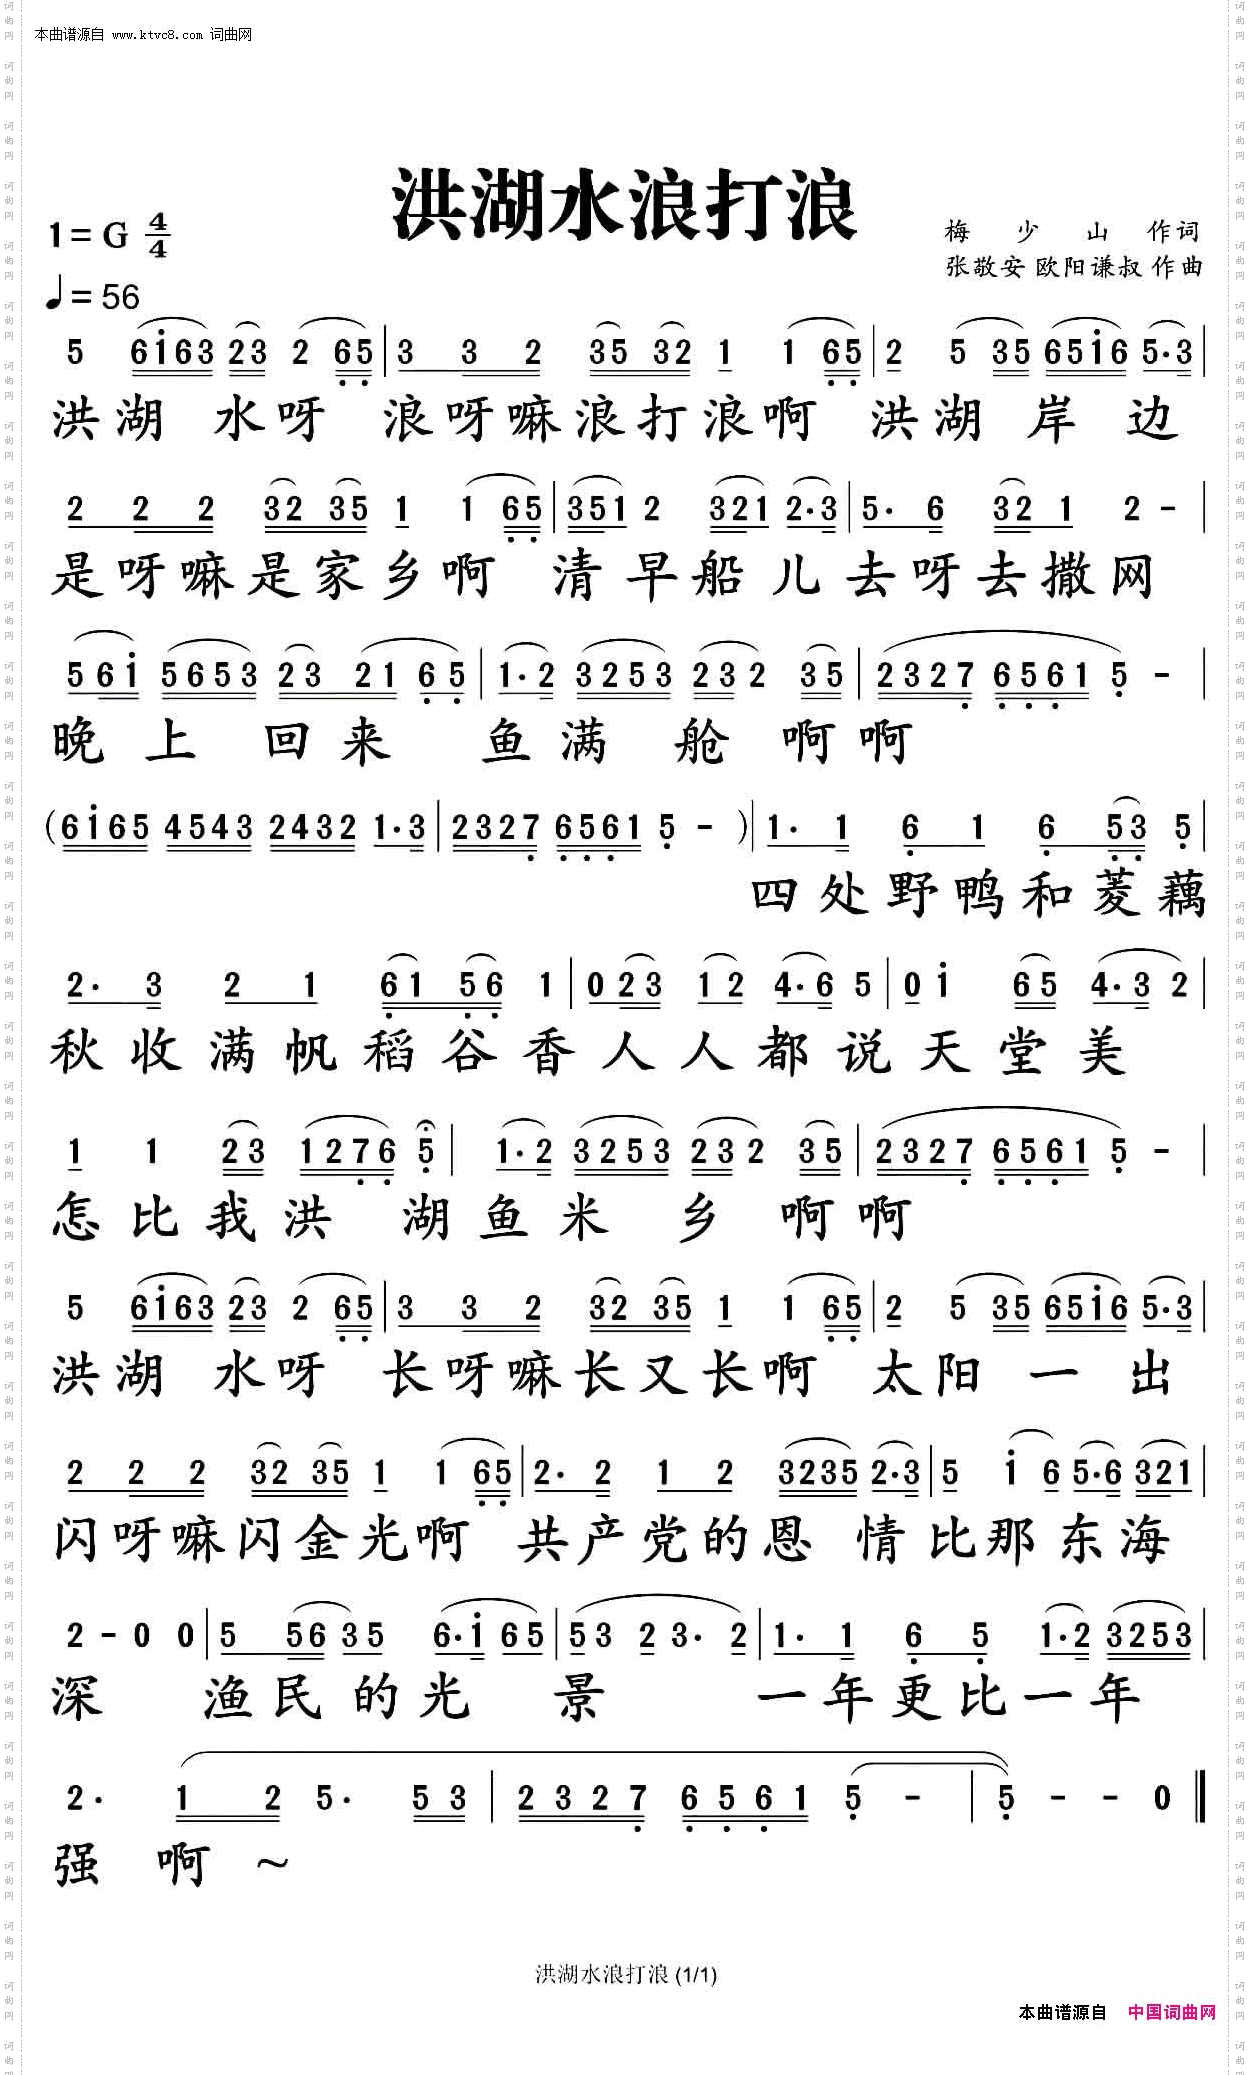 本曲谱源自 www.ktvc8.com 词曲网
洪湖水浪打浪
1=G 4/4
梅少山 作词
♩=56
张敬安 欧阳谦叔 作曲
5 6i63 23 2 65 | 3 3 2 35 32 1 1 65 | 2 5 35 65i6 5·3 |
洪湖 水呀 浪呀嘛浪打浪啊 洪湖岸边
2 2 2 32 35 1 1 65 | 351 2 321 2·3 | 5· 6 32 1 2 - |
是呀嘛是家乡啊 清早船儿去呀去撒网
56i 5653 23 21 65 | 1·2 3253 232 35 | 2327 6561 5 - |
晚上回来 鱼满舱啊啊
(6i65 4543 2432 1·3 | 2327 6561 5 - ) | 1· 1 6 1 6 53 5 |
四处野鸭和菱藕
2· 3 2 1 61 56 1 | 0 23 12 4·6 5 | 0 i 65 4·3 2 |
秋收满帆稻谷香人人都说天堂美
1 1 23 1276 5 | 1·2 3253 232 35 | 2327 6561 5 - |
怎比我洪 湖鱼米乡啊啊
5 6i63 23 2 65 | 3 3 2 32 35 1 1 65 | 2 5 35 65i6 5·3 |
洪湖 水呀 长呀嘛长又长啊 太阳一出
2 2 2 32 35 1 1 65 | 2· 2 1 2 3235 2·3 | 5 i 6 5·6 321 |
闪呀嘛闪金光啊 共产党的恩 情比那东海
2 - 0 0 | 5 56 35 6·i 65 | 53 2 3· 2 | 1· 1 6 5 1·2 3253 |
深 渔民的光 景 一年更比一年
2· 1 2 5· 53 | 2327 6561 5 - | 5 - - 0 ‖
强 啊 ~
洪湖水浪打浪 (1/1)
本曲谱源自 中国词曲网